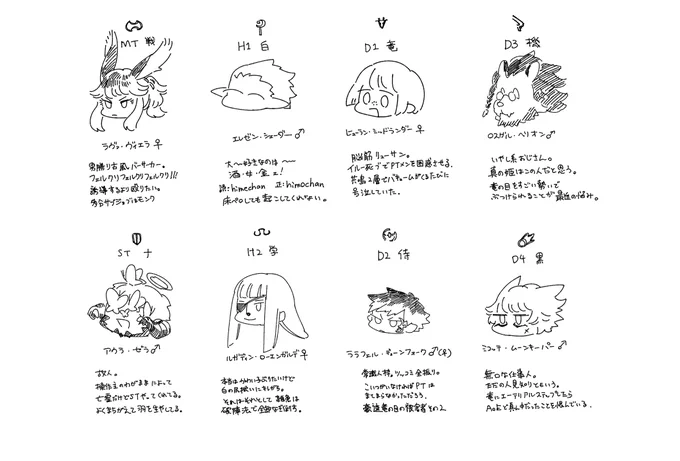 MT 戦
ラヴァ・ヴィエラ ♀
男勝り古風バーサーカー。
フェルクリフェルクリフェルクリ!!!
誘導するより殴りたい。
H1 白
エレゼン・シェーダー ♂
大〜好きなのは〜〜
酒・女・金ェ!
誤:himechan 正:himochan
床ペロしても起こしてくれない。
D1 竜
ヒューラン・ミッドランダー ♀
脳筋リューサン。
イルーシブでPTメンを困惑させる。
号泣していた。
D3 機
ロスガル・ヘリオン ♂
いやし系おじさん。
真の姫はこの人だと思う。
竜の目をすごい勢いで
ぶつけられることが最近の悩み。
ST ナ
アウラ・ゼラ ♂
故人。
操作主のわがままによって
亡霊だけどSTやってくれてる。
よくまちがえて羽を生やしてる。
H2 学
ルガディン・ローエンガルデ ♀
本当はかわいこぶりたいけど
白の尻拭いに忙がしい。
それはそれとして雑魚は
破陣法で全回なぎ払う。
D2 侍
ララフェル・デューンフォーク ♂
常識人枠。ツッコミ全振り。
こいつがいなければPTは
まとまらなかっただろう。
竜の目の被害者その2
D4 黒
ミコッテ・ムーンキーパー ♂
無口な仕事人。
ただの人見知りともいう。
竜にエーテリアルステップしたら